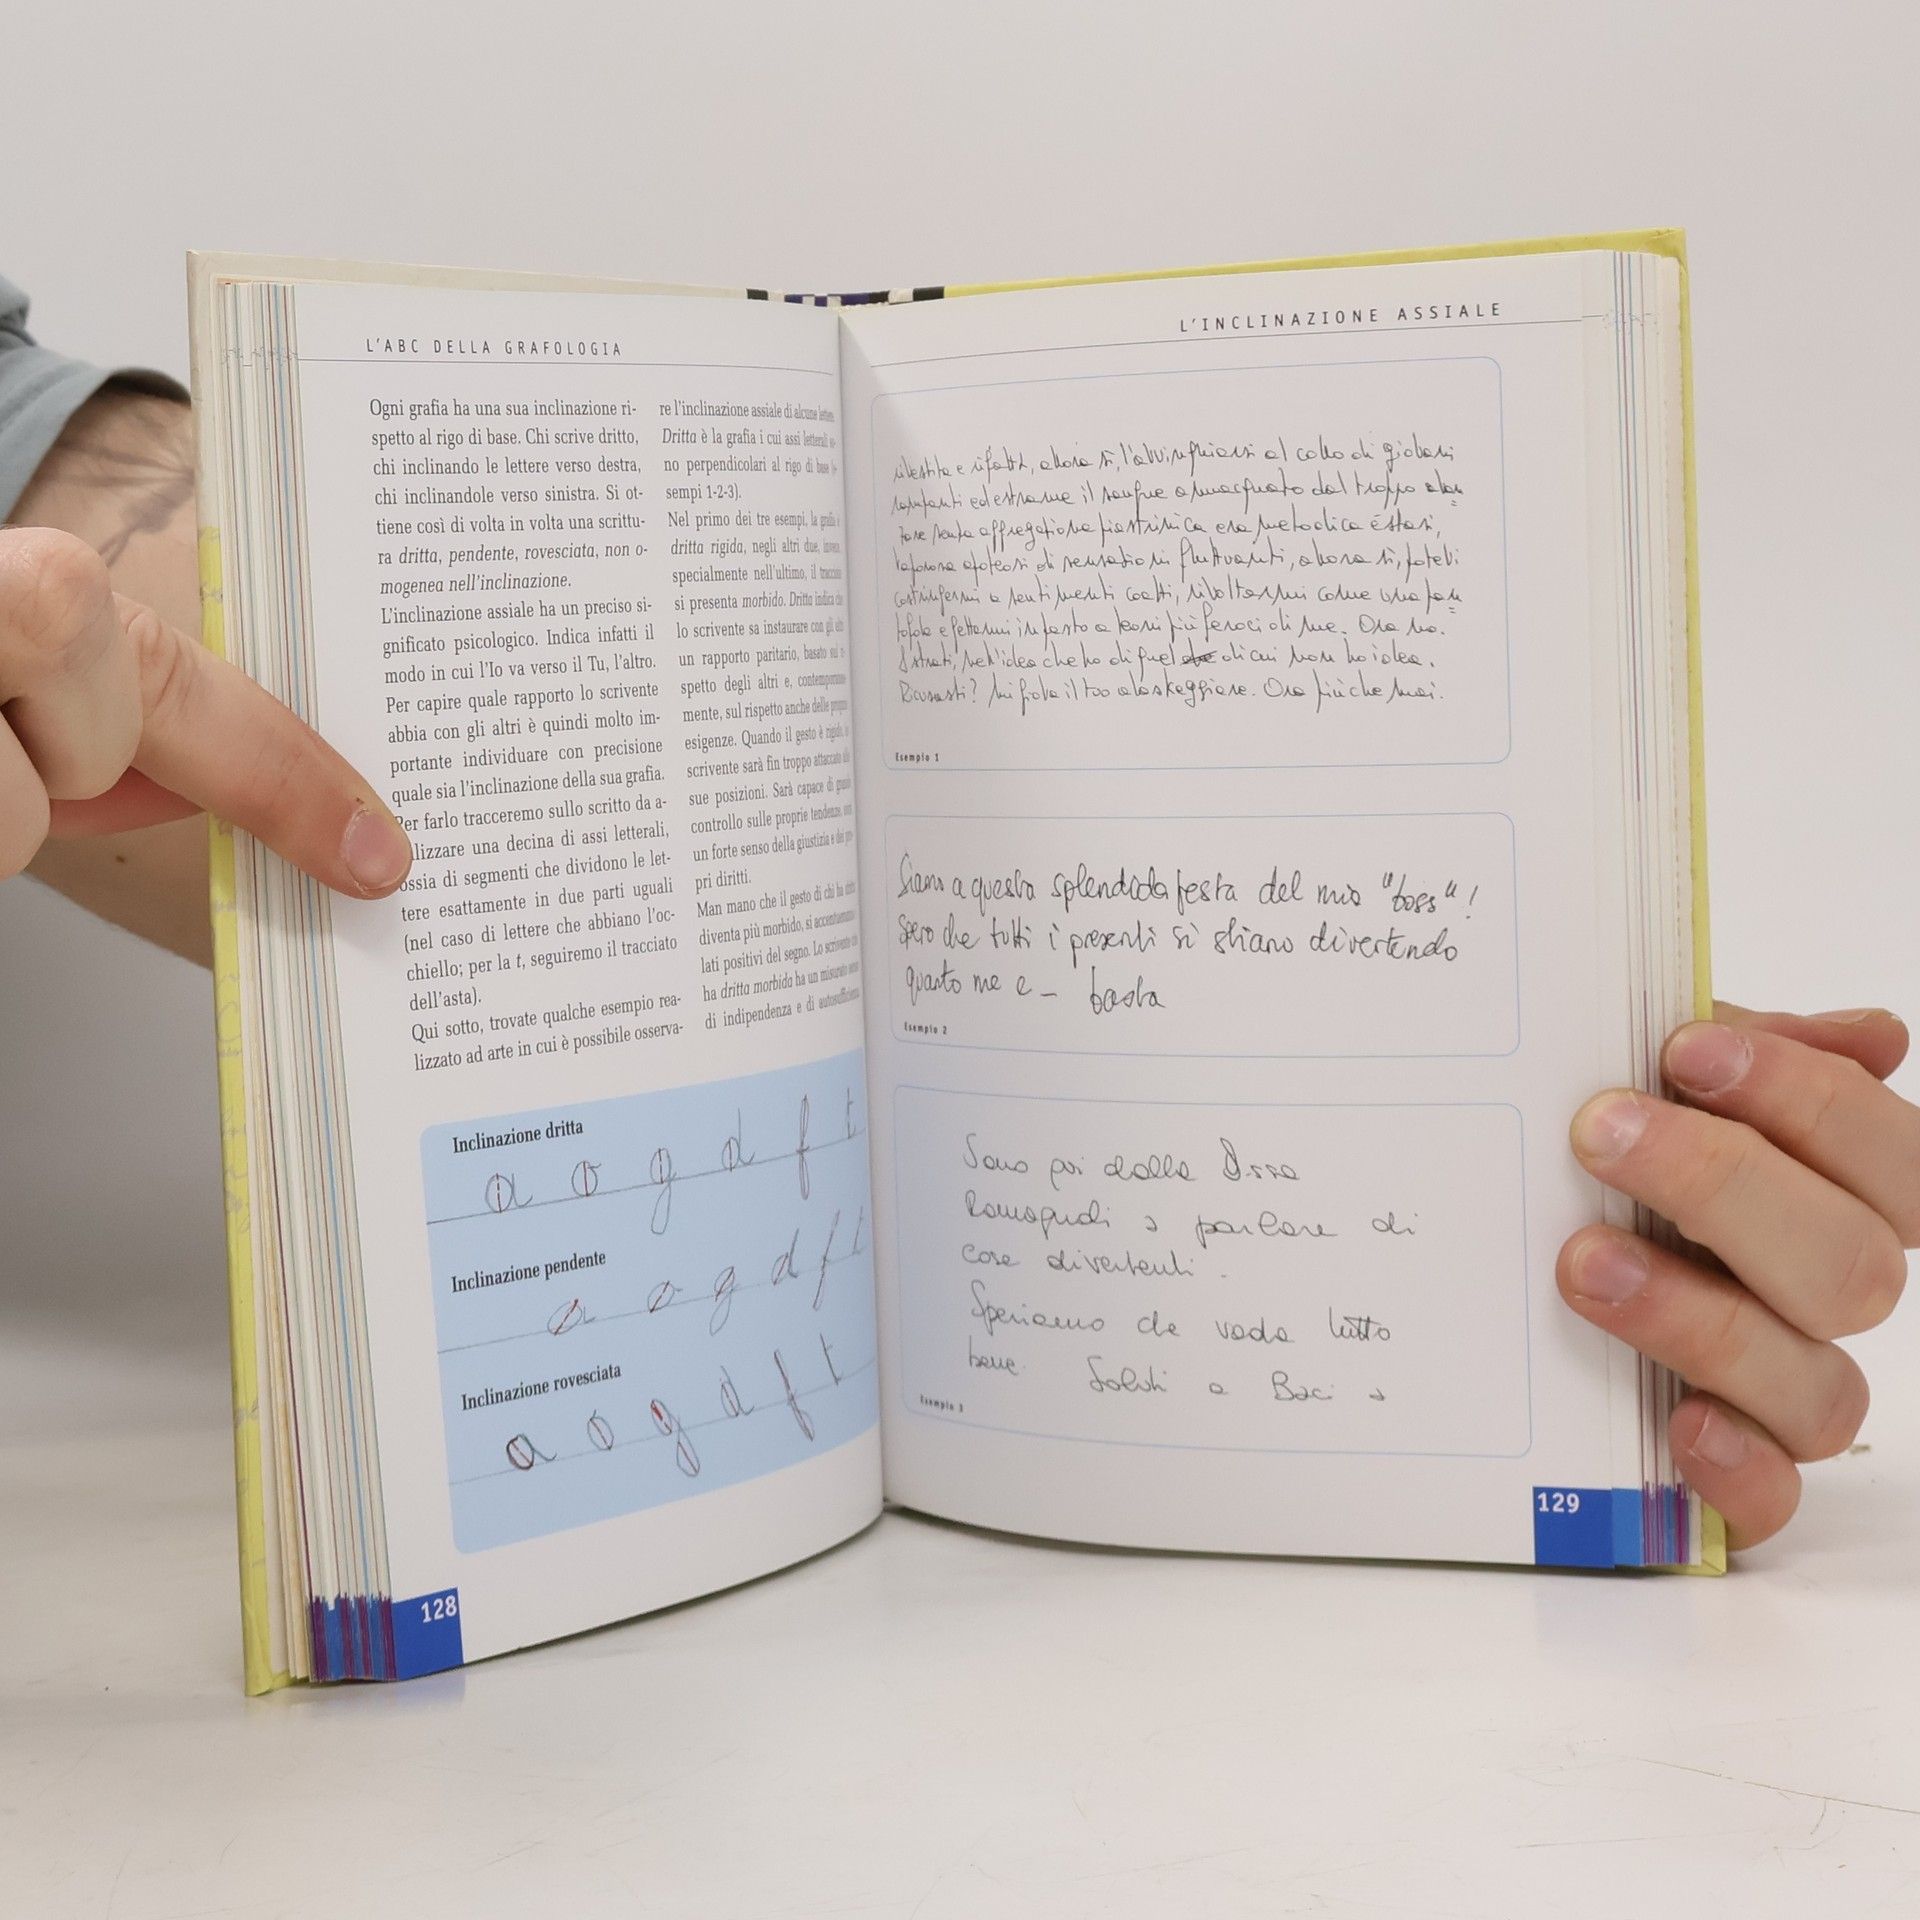 L'ABC DELLA GRAFOLOGIA
Ogni grafia ha una sua inclinazione ri-
spetto al rigo di base. Chi scrive dritto,
chi inclinando le lettere verso destra,
chi inclinandole verso sinistra. Si ot-
tiene così di volta in volta una scrittu-
ra dritta, pendente, rovesciata, non o-
mogenea nell'inclinazione.
L'inclinazione assiale ha un preciso si-
gnificato psicologico. Indica infatti il
modo in cui l'Io va verso il Tu, l'altro.
Per capire quale rapporto lo scrivente
abbia con gli altri è quindi molto im-
portante individuare con precisione
quale sia l'inclinazione della sua grafia.
Per farlo tracceremo sullo scritto da a-
lizzare una decina di assi letterali,
ossia di segmenti che dividono le let-
tere esattamente in due parti uguali
(nel caso di lettere che abbiano l'oc-
chiello; per la t, seguiremo il tracciato
dell'asta).
Qui sotto, trovate qualche esempio rea-
lizzato ad arte in cui è possibile osserva-
re l'inclinazione assiale di alcune lettere.
Dritta è la grafia i cui assi letterali so-
no perpendicolari al rigo di base (e-
sempi 1-2-3).
Nel primo dei tre esempi, la grafia è
dritta rigida, negli altri due, invece,
specialmente nell'ultimo, il tracciato
si presenta morbido. Dritta indica che
lo scrivente sa instaurare con gli altri
un rapporto paritario, basato sul ri-
spetto degli altri e, contemporanea-
mente, sul rispetto anche delle proprie
esigenze. Quando il gesto è rigido, lo
scrivente sarà fin troppo attaccato alle
sue posizioni. Sarà capace di grande
controllo sulle proprie tendenze, con
un forte senso della giustizia e dei pro-
pri diritti.
Man mano che il gesto di chi ha dritta
diventa più morbido, si accentuano i
lati positivi del segno. Lo scrivente che
ha dritta morbida ha un misurato senso
di indipendenza e di autosufficienza
Inclinazione dritta
a o g d f t
Inclinazione pendente
a o g d f t
Inclinazione rovesciata
a o g d f t
128
L'INCLINAZIONE ASSIALE
allora sì, l'avvinghiarsi al collo di giovani
ed estrarne il sangue annacquato dal troppo
aggregazione piastrinica era metodica estasi,
vaporosa apoteosi di sensazioni fluttuanti, allora sì, potevi
costringermi a sentimenti coatti, rivoltarmi come una pan
tofola e gettarmi in pasto a leoni più feroci di me. Ora no.
nell'idea che ho di quel di cui non ho idea.
Ricusasti? Mi giova il tuo alaskeggiare. Ora più che mai.
Esempio 1
Siamo a questa splendida festa del mio "boss"!
Spero che tutti i presenti si stiano divertendo
quanto me e - basta
Esempio 2
Sono qui dalla D.ssa
Romagnoli a parlare di
cose divertenti.
Speriamo che vada tutto
bene. Saluti e Baci a
Esempio 3
129